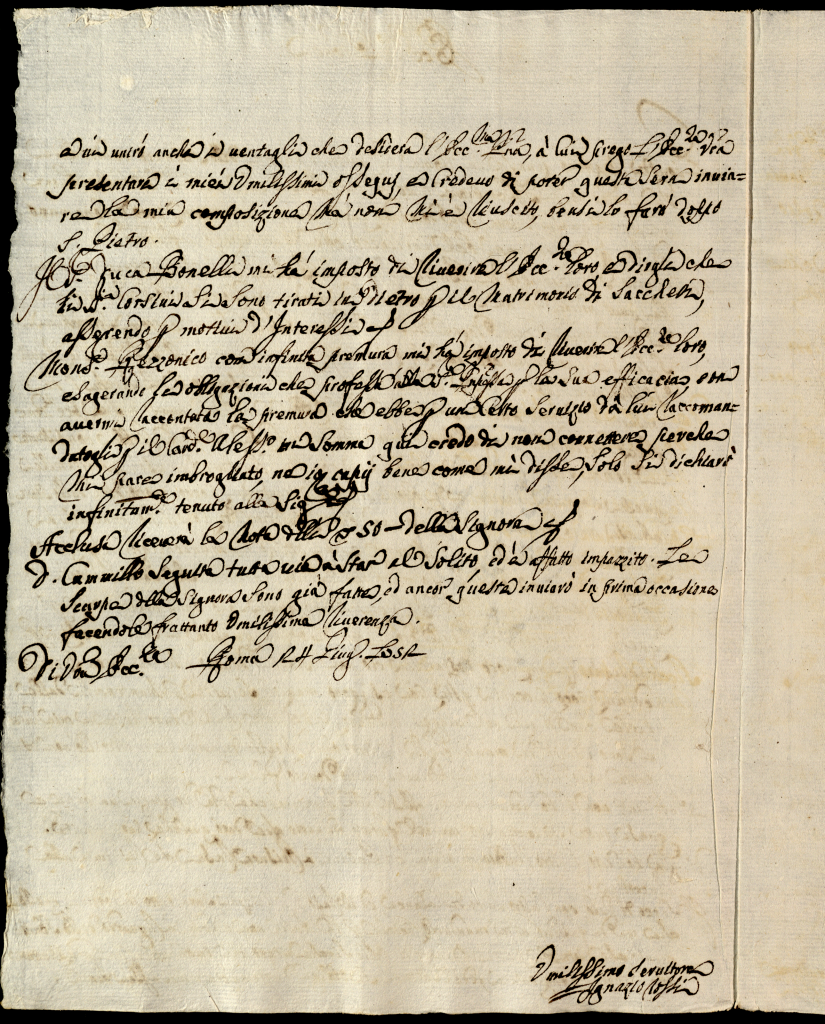 e vi unirò anche i ventagli che desidera l'Ecc.ma D.na, à lui prego l'Ecc.za V.ra
presentare i miei Umilissimi ossequj, e Credevo di poter questa sera invia=
re la mia composizione Mà non Mi è Riuscito, bensi lo farò doppo
S. Pietro.
Il S.r Duca Bonelli mi hà imposto di Riverire l'Ecc.ze loro e dirgli che
li SS.ri Corsini si sono tirati in dietro p il Matrimonio di Sacchetti,
asserendo p motivi d'Interessi
Mons.r Rezzonico con infinita premura mi hà imposto di Riverire l'Ecc.ze loro,
esagerando le obligazioni che professa p la sua efficacia, con
avermi raccontata la premura che ebbe p un certo servizio da lui raccoman=
datogli p il Card. Aless.o in somma qui credo di non commettere
Mi pare imbrogliato, ne io capij bene come mi disse, solo si dichiarò
infinitam.te tenuto alla Sig.ra
Acclusa riceverà la Nota delli 50 – della Signora
D. Cammillo seguita tutta via à star al Solito, ed è affatto impazzito. Le
Scarpe della Signora sono già fatte, ed ancor queste inviarò in prima occasione
facendole frattanto Umilissima Riverenza.
Di V.ra Ecc.za Roma 24 Giug.
Umilissimo Servitore
Ignazio Rossi